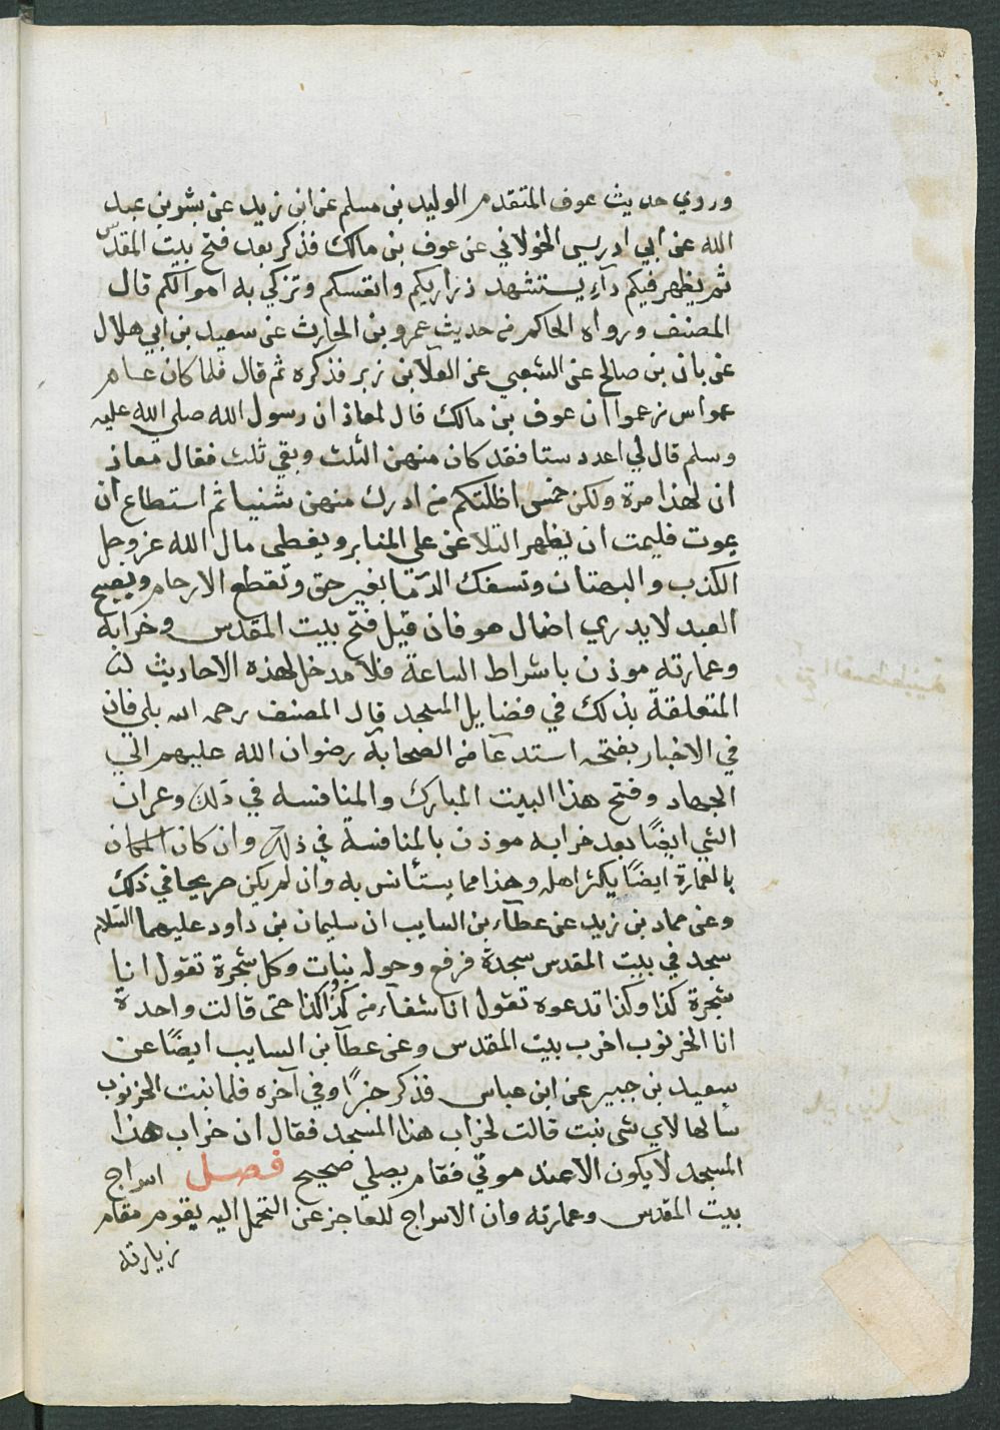 وروي حديث عوف المتقدم الوليد بن مسلم عن ابن زيد عن بشر بن عبد
الله عن ابي ادريس الخولاني عن عوف بن مالك فذكر بعد فتح بيت المقدس
ثم يظهر فيكم داء يستشهد ذراريكم وانفسكم وتزكي به اموالكم قال
المصنف ورواه الحاكم من حديث عمرو بن الحارث عن سعيد بن ابي هلال
عن بان بن صالح عن الشعبي عن العلا بن زبر فذكره ثم قال فلما كان عام
عمواس زعموا ان عوف بن مالك قال لمعاذ ان رسول الله صلي الله عليه
وسلم قال لي اعدد ستا فقد كان منهن الثلث وبقي ثلث فقال معاذ
ان لهذا مرة ولكن خمس اظلتكم من ادرك منهن شنيا ثم استطاع ان
يموت فليمت ان يظهر التلاعن على المنابر ويعطى مال الله عز وجل
الكذب والبهتان وتسفك الدما بغير حق وتقطع الارحام ويصبح
العبد لا يدري اضال هو فان قيل فتح بيت المقدس وخرابه
وعمارته موذن باشراط الساعة فلا مدخل لهذه الاحاديث لنا
المتعلقة بذلك في فضايل المسجد قال المصنف رحمه الله بلي فان
في الاخبار بفتحه استدعآ من الصحابة رضوان الله عليهم الي
الجهاد وفتح هذا البيت المبارك والمنافسه في ذلك وعمران
الشي ايضًا بعد خرابه موذن بالمنافسة في ذلك وان كان المكان
بالعمارة ايضًا يكثر اهله وهذا مما يستأنس به وان لم يكن صريحا في ذلك
وعن حماد بن زيد عن عطآء بن السايب ان سليمان بن داود عليهما السلام
سجد في بيت المقدس سجدة فرفع وحوله نبات وكل شجرة تقول انا
شجرة كذا وكذا تدعوه تقول انا شفآء من كذا وكذا حتى قالت واحدة
انا الخرنوب اخرب بيت المقدس وعن عطآ بن السايب ايضًا عن
سعيد بن جبير عن ابن عباس فذكر خبرًا وفي آخره فلما نبت الخرنوب
سألها لاي شى نبت قالت لخراب هذا المسجد فقال ان خراب هذا
المسجد لا يكون الا عند موتي فقام يصلي صحيح فصل اسراج
بيت المقدس وعمارته وان الاسراج للعاجز عن التحمل اليه يقوم مقام
زيارته